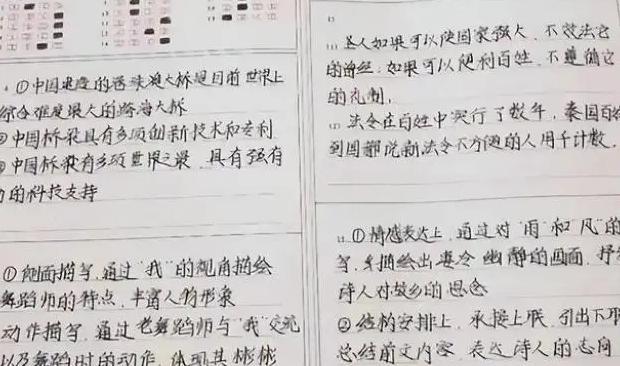 ①中国建造的港珠澳大桥是目前世界上
综合难度最大的跨海大桥
②中国桥梁具有多项创新技术和专利
③中国桥梁有多项世界之最，具有强有
力的科技支持
①侧面描写，通过"我"的视角描绘
舞蹈师的特点，丰富人物形象
动作描写，通过老舞蹈师与"我"交流
以及舞蹈时的动作，体现其彬彬
圣人如果可以使国家强大，不效法它
的旧经；如果可以便利百姓，不遵循它
的礼制。
法令在百姓中实行了数年，秦国百姓
到国都说新法令不方便的人用千计数。
①情感表达上，通过对"雨"和"风"的
写，描绘出凄冷幽静的画面，抒
诗人对故乡的思念
②结构安排上，承接上联，引出下联
总结前文内容，表达诗人的志向